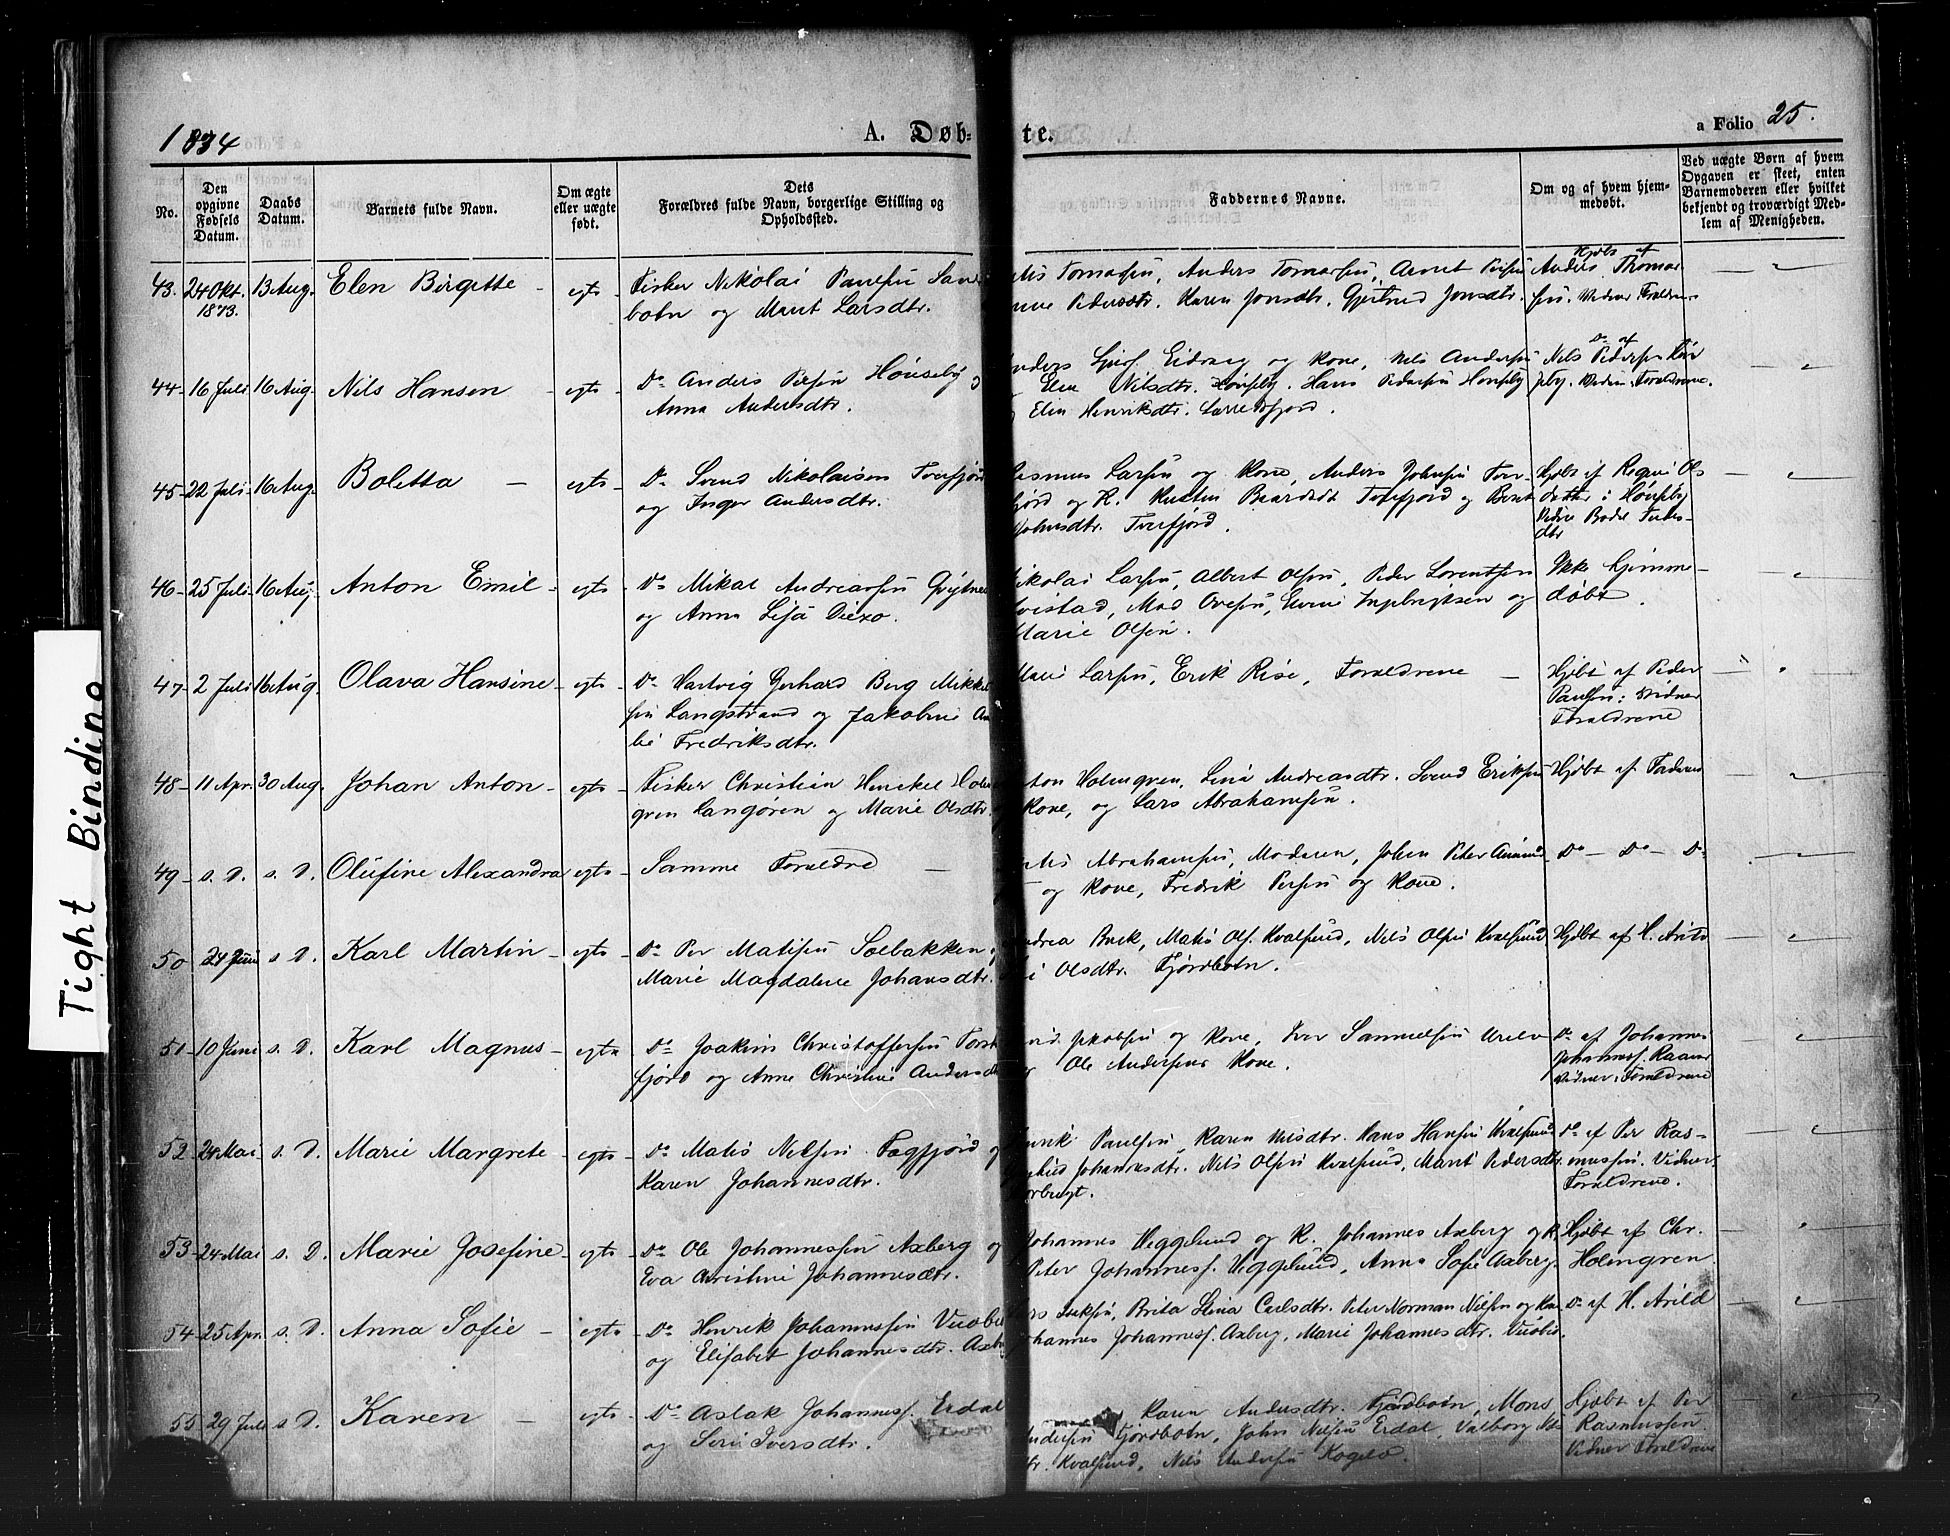 Tight Binding
1834
A. Døb-
te.
a Folio 25.
No.
Den opgivne Fødsels Datum.
Daabs Datum.
Barnets fulde Navn.
Om ægte eller uægte født.
Dets Forældres fulde Navn, borgerlige Stilling og Opholdssted.
Faddernes Navne.
Om og af hvem hjemmedøbt.
Ved uægte Børn af hvem Opgaven er skeet, enten Barnemoderen eller hvilket bekjendt og troværdigt Medlem af Menigheden.
43. 24 Okt. 1873. 13 Aug. Elen Birgitte - egte - Fisker Nikolai Paulsen
botn og Marit Larsdtr.
Tomassen, Anders Tomassen,
Pedersdtr. Karen Jonsdtr. Gjertrud Jonsdtr.
Hjdbt af Anders Thomas
sen. Vidner Foraldrene
44 - 16 Juli 16 Aug. Nils Hansen - egte - Do Anders Persen Hønseby
Anna Andersdtr.
Eidvaag og Kone, Nils Andersen
Elen Nilsdtr. Hønseby. Hans Pedersen Hønseby
Elin Henriksdtr. Lerretsfjord.
Do af Nils Pedersen Høn
seby. Vidner: Foraldrene.
45 - 22 Juli - 16 Aug. Boletta - egte - Do Svend Nikolaisen Torefjord
og Inger Andersdtr.
Rasmus Larsen og Kone, Anders Johnsen Tore-
fjord og K. Kirsten Torefjord og Berit
Johnsdtr. Torefjord.
Hjdbt af Regine Ols
datter i Hønseby
46 - 25 Juli - 16 Aug. Anton Emil - egte - Do Mikal Andreassen
og Anna Lisa
Nikolai Larsen, Albert Olsen, Peder Lorentsen
Kvistad, Mad Ovesen, Ingebrigtsen og
Marie Olsen.
Ikke hjemme-
døbt.
47 - 2 Juli 16 Aug. Olava Hansine - egte - Do Hartvig Gerhard Berg Mikkel
sen Langstrand og Jakobine
lie Fredriksdtr.
Larsen, Erik Risi, Foraldrene -
Hjdbt af Peder
Paulsen: Vidner
Foraldrene
48 - 11 Apr. 30 Aug. Johan Anton - egte - Fisker Christian Henrikel Holm
gren Langøren og Marie Olsdtr.
Anton Holmgren, Lina Andreasdtr. Svend Eriksen
Kone, og Lars Abrahamsen.
Hjdbt af Faderen
49 - s. D. s. D. Olufine Alexandra egte - Samme Foraldre -
Abrahamsen, Moderen, Johan Peter
og Kone, Fredrik Persen og Kone.
Do - Do - Do
50 24 Juni s. D. Karl Martin - egte - Do Per Matisen Solbakken
Marie Magdalene Johansdtr.
Andrea Buck, Matis Ols. Kvalsund, Nils Olsen Kvalsund
Olsdtr. Fjordbotn.
Hjdbt af H. Arild
51 - 10 Juni s. D. Karl Magnus - egte - Do Joakim Christoffersen Torsk
fjord og Anne Christine Andersdtr
Jakobsen og Kone, Iver Samuelsen
Ole Andersens Kone.
Do af Johannes
Johanness.
Vidner: Foraldrene
52 - 24 Mai - s. D. Marie Margrete - egte - Do Matis Nilsen Fægfjord
Karen Johannesdtr.
Henrik Paulsen, Karen Nilsdtr. Hans Hansen Kvalsund
Johannesdtr. Nils Olsen Kvalsund, Marit Pedersdtr.
Do af Per Ras-
mussen. Vidner,
Foraldrene.
53 - 24 Mai s. D. Marie Josefine - egte - Do Ole Johannessen Axberg og
Eva Christine Johannesdtr.
Johannes Veggelund og K. Johannes Axberg og K.
Peter Johanness. Veggelund, Anna Sofie Axberg.
Hjdbt af Chr.
Holmgren
54 - 25 Apr. s. D. Anna Sofie - egte - Do Henrik Johannessen
og Elisabet Johannesdtr.
Isaksen, Brita Stina Carlsdtr. Peter Norman Nilsen og Kone
Johannes Johanness. Axberg, Marie Johannesdtr.
Do af H. Arild
55 - 29 Juli s. D. Karen - egte - Do Aslak Johanness. Erdal
og Siri Iversdtr.
Karen Andersdtr. Fjordbotn, Mons
Andersen Fjordbotn, John Nilsen Erdal, Valborg
Kvalsund, Nils Andersen
Hjdbt af Per
Rasmussen
Vidner Foraldrene